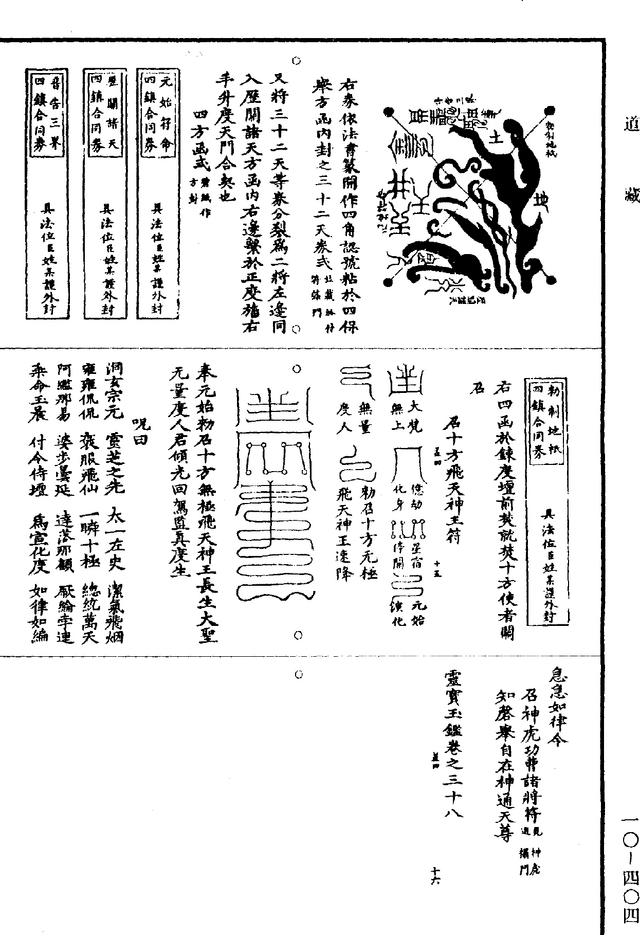 道藏
土
地
勑制地祇
右券依法書篆開作四角認號粘於四保
舉方函內封之三十二天券式
又將三十二天等券分裂爲二將左邊同
入歷關諸天方函內右邊繫於正度旛右
手升度天門合契也
四方函式
元始符命
四鎮合同券
具法位臣姓某謹外封
歷關諸天
四鎮合同券
具法位臣姓某謹外封
音告三界
四鎮合同券
具法位臣姓某謹外封
勑制地祇
四鎮合同券
具法位臣姓某謹外封
右四函於鍊度壇前焚就焚十方使者關
召
召十方飛天神王符
十五
大梵
無上
化身
星宿
元始
演化
無量
度人
勑召十方无極
飛天神王速降
奉元始勑召十方無極飛天神王長生大聖
无量度人君傾光回駕監真度生
呪曰
洞玄宗元 靈芝之先 太一左史 潔氣飛烟
雍雍侃侃 袭服飛仙 一瞬十極 總統萬天
付令侍壇 爲宣化度 如律如綸
急急如律令
召神虎功曹諸將符
知磬舉自在神通天尊
靈寶玉鑑卷之三十八
十六
一〇-四〇四